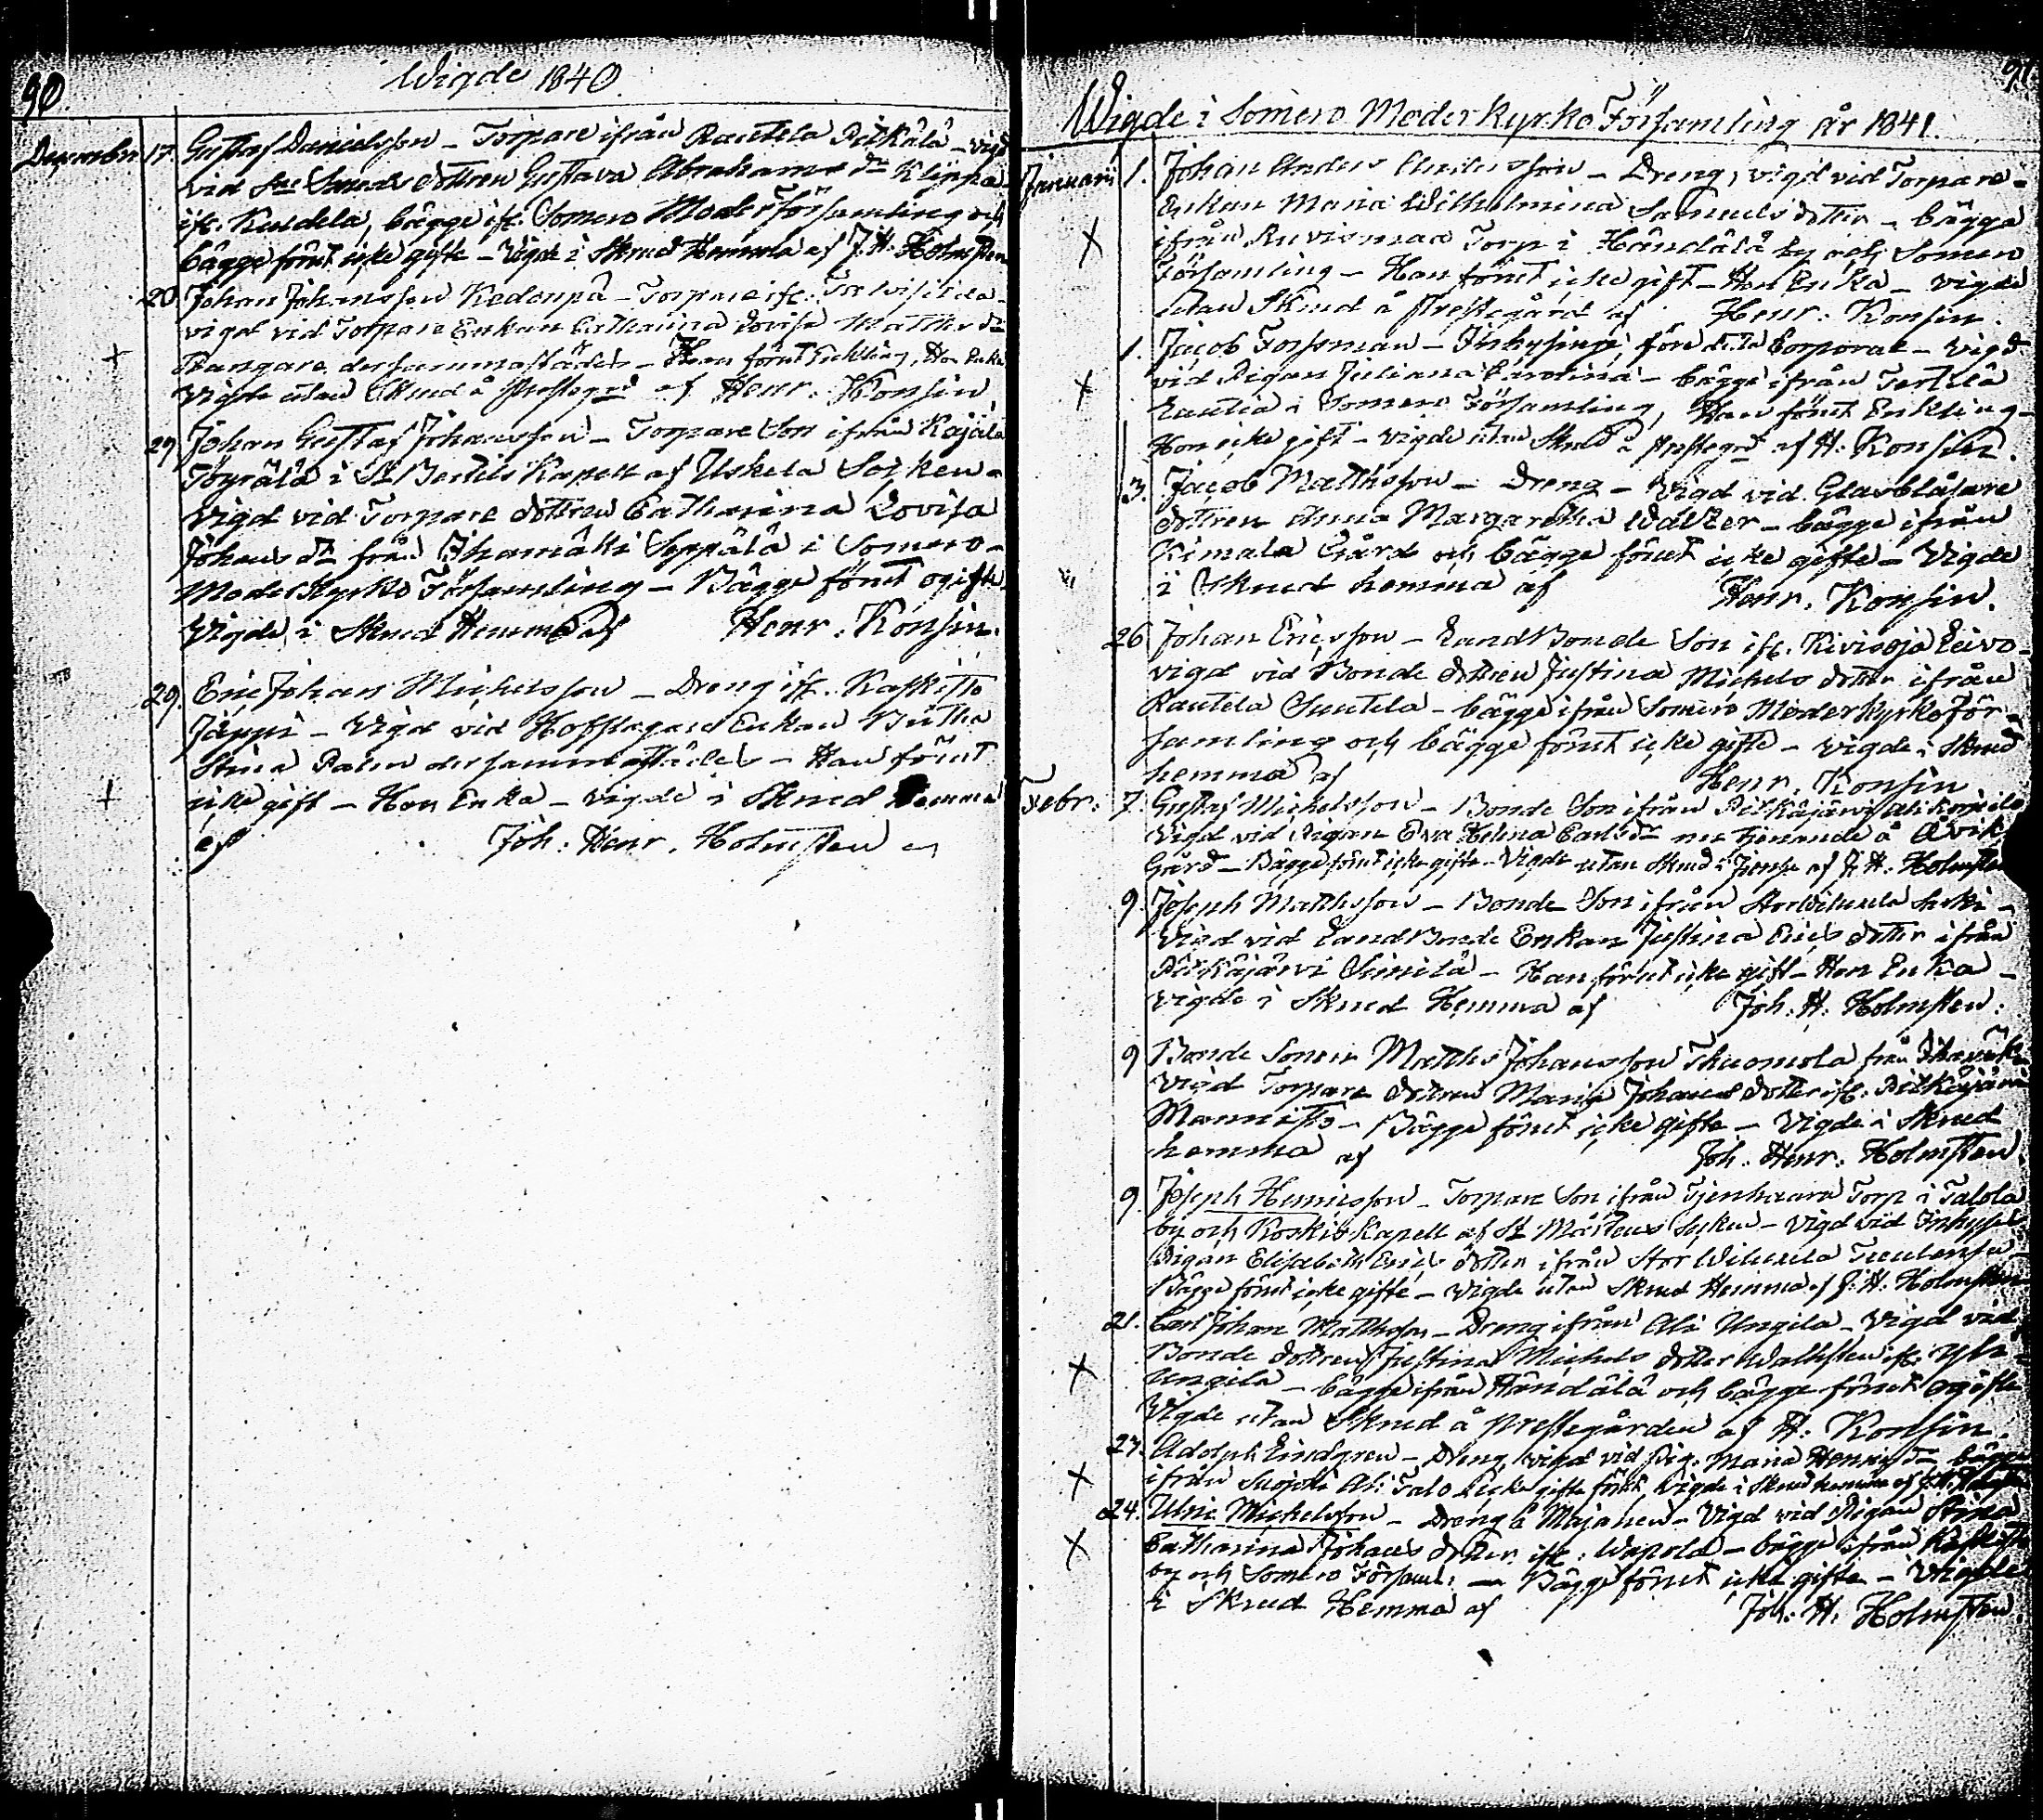 90.
Wigde 1840.
December 17. Gustaf Danielsson – Torpare ifrån Rautela Pitkälä – vigd
vid Sne Smeds dottren Gustava Abrahams dr Klippa
ifr. Kuldela, bägge ifr. Somero Moder Församling och
bägge förut icke gifte – Vigde i Skrud Hemma af J. H. Holmsten
20. Johan Johansson Kedonpä – Torpare ifr. Torvisilda –
vigd vid Torpare Enkan Catharina Lovisa Matths dr
+ Rangare dersammastädes – Han förut Enkling, Hon Enka
vigde utan Skrud å Prestegrd af Henr. Konsin
29. Johan Gustaf Johansson – Torpare Son ifrån Kajala
Töyrälä i St Bertils Kapell af Uskela Socken –
vigd vid Torpare dottren Catharina Lovisa
Johans dr från Ihamäki Seppälä i Somero –
Moderkyrko Församling – Bägge förut ogifte
Vigde i Skrud Hemma af Henr. Konsin.
29. Eric Johan Michelsson – Dreng ifr. Kaskisto
Jäppi – Vigd vid Hofslagare Enkan
Stina Palin dersammastädes – Han förut
+ icke gift – Hon Enka – vigde i Skrud Hemma
af Joh: Henr. Holmsten
91.
Wigde i Somero Moderkyrko Församling år 1841.
Januarii 1. Johan Anders Andersson – Dreng, vigd vid Torpare –
Enkan Maria Wilhelmina Samuels dotter – bägge
X ifrån Ruvismaa Torp i Händälä by och Somero
Församling – Han förut icke gift – Hon Enka – vigde
utan Skrud å Prestegård af Henr: Konsin.
1. Jacob Forssman – Inhysing, före detta Corporal – vigd
X vid Pigan Juliana Carolina – bägge ifrån Terttilä
Rautia i Somero Församling, Han förut Enkling –
Hon icke gift – vigde utan Skrud å Prestegrd af H. Konsin.
3. Jacob Matthsson – Dreng – Vigd vid Glasblåsare
dottren Anna Margaretha Walter – bägge ifrån
Kimala Gård och bägge förut icke gifte – Vigde
i Skrud hemma af Henr. Konsin.
26. Johan Ericsson – LandBonde Son ifr. Kivisoja Leivo –
vigd vid Bonde dottren Justina Michels dotter ifrån
Rautela Suutela – bägge ifrån Somero Moderkyrko För-
samling och bägge förut icke gifte – vigde i Skrud
hemma af Henr. Konsin
Febr: 7. Gustaf Michelsson – Bonde Son ifrån Pitkäjärvi
vigd vid Pigan Eva Helena Carls dr nu tjenande å Åvik
Gård – Bägge förut icke gifte – Vigde utan Skrud i Jiensu af J. H. Holmsten
9. Joseph Matthsson – Bonde Son ifrån StorWiluxela
Vigd vid LandBonde Enkan Justina Erics dotter ifrån
Pitkäjärvi Simila – Han förut icke gift – Hon Enka –
vigde i Skrud Hemma af Joh. H. Holmsten.
9. Bonde Sonen Matths Johansson Thuomola från
Vigd Torpare dottren Maria Johans dotter ifr. Pitkäjärvi
Mannisto – Bägge förut icke gifte – Vigde i Skrud
hemma af Joh. Henr. Holmsten.
9. Joseph Henricsson – Torpare Son ifrån Tjenhaara Torp i Talola
by och Koskis Kapell af St Mårtens Socken – Vigd vid Inhyses
Pigan Elisabeth Erics dotter ifrån Stor Wiluxela
Bägge förut icke gifte – Vigde utan Skrud Hemma af J. H. Holmsten
21. Carl Johan Matthsson – Dreng ifrån Ali Ungila – Vigd vid
X Bonde dottren Justina Michels dotter Wallsten ifr. Yli
Ungila – bägge ifrån Händälä och bägge förut ogifte
Vigde utan Skrud å Prestegården af H. Konsin.
23. Adolph Lindgren – Dreng vigd vid Pig. Maria Henrics dr bägge
X ifrån Suojoki Ali Talo icke gifte förut, Vigde i Skrud hemma af
24. Ulric Michelsson – Dreng å Majanen – Vigd vid Pigan Stina
X Catharina Johans dotter ifr. Wapola – bägge ifrån
by och Somero Församl. – Bägge förut icke gifte – Vigde
i Skrud Hemma af Joh. H. Holmsten.